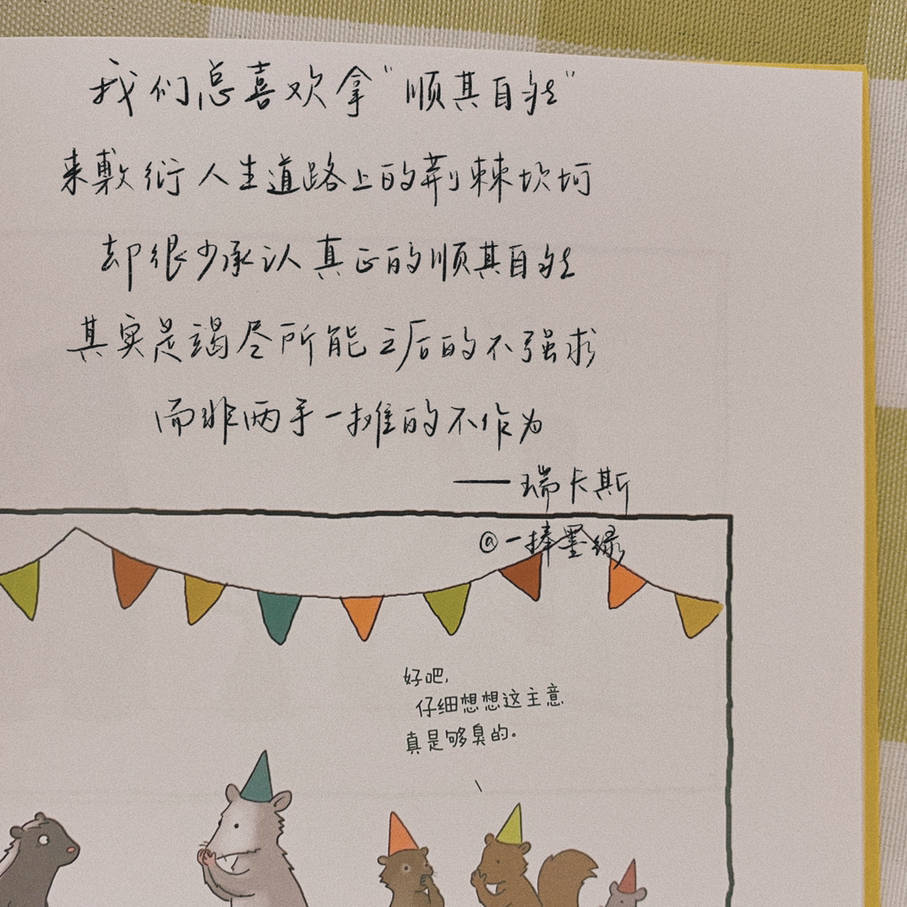 我们总喜欢拿"顺其自然"
来敷衍人生道路上的荆棘坎坷
却很少承认真正的顺其自然
其实是竭尽所能之后的不强求
而非两手一摊的不作为
——瑞卡斯
@一捧墨绿
好吧,
仔细想想这主意
真是够臭的。